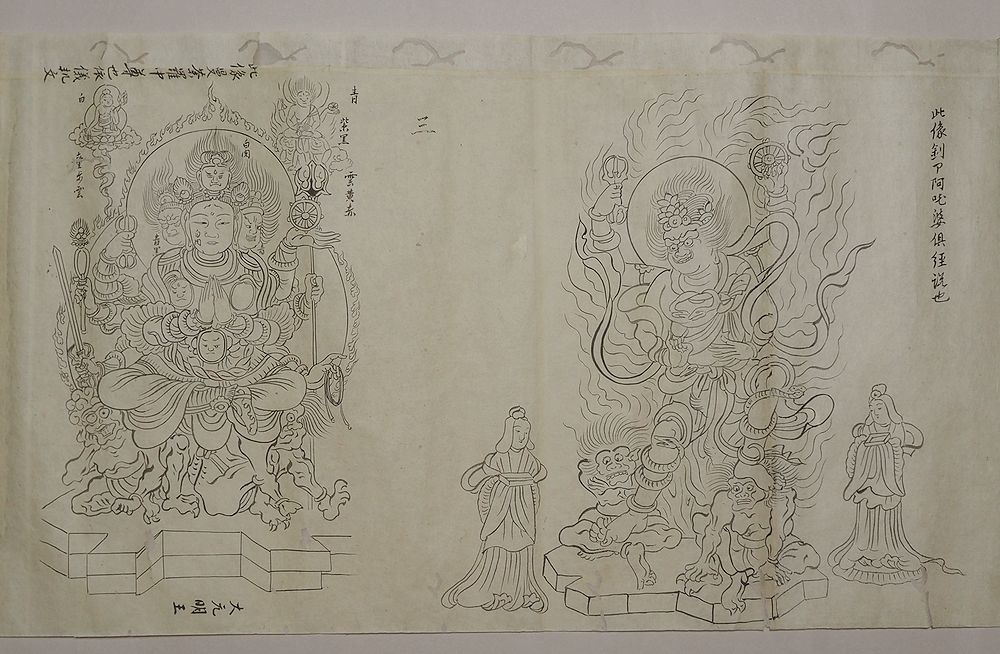 此像
阿吒婆倶経説也
三
此像曼荼羅中尊也依儀軌文
青
紫黒
雲黄赤
白肉
白
雲
白肉
青黒
大元明王